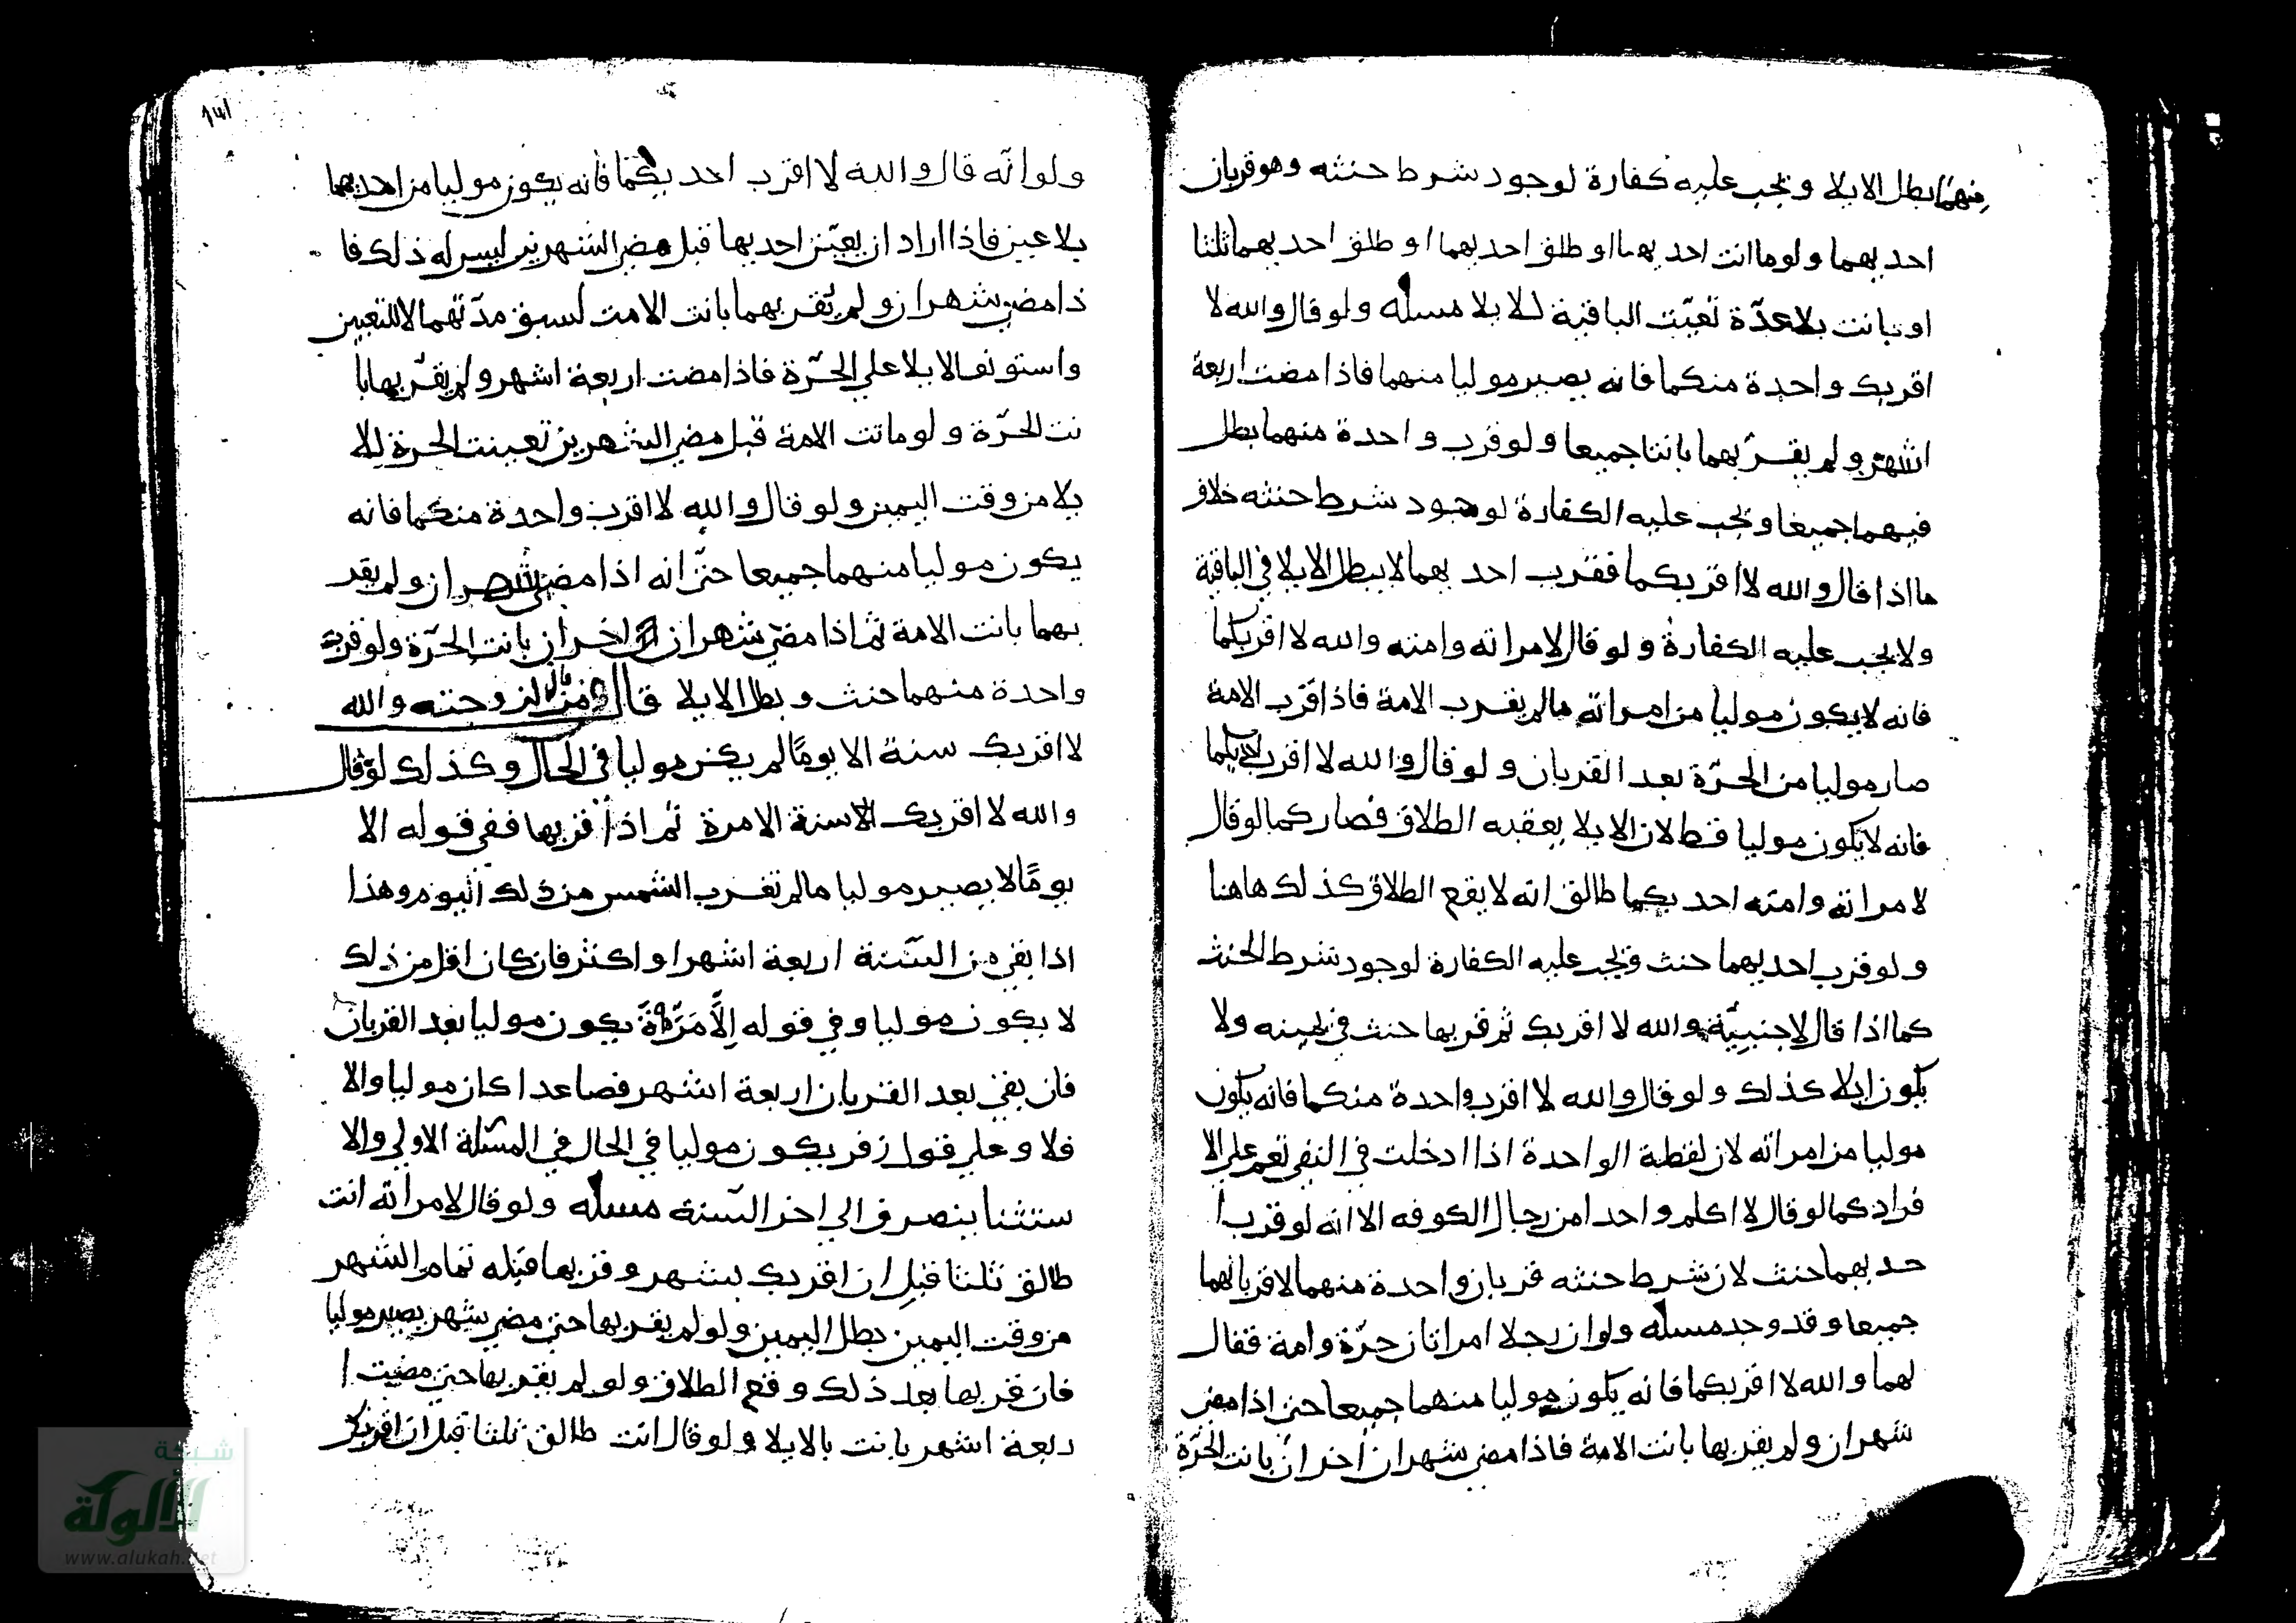 منهما بطل الايلا ويجب عليه كفارة لوجود شرط حنثه وهو قربان
احديهما ولو ماتت احديهما او طلق احديهما او طلق احديهما ثلثا
او بانت بلا عدّة تعيّنت الباقية للايلا مسله ولو قال والله لا
اقربك واحدة منكما فانه يصير موليا منهما فاذا مضت اربعة
اشهر ولم يقربهما بانتا جميعا ولو قرب واحدة منهما بطل
فيهما جميعا ويجب عليه الكفارة لوجود شرط حنثه خلاف
ما اذا قال والله لا اقربكما فقرب احديهما لا يبطل الايلا في الباقية
ولا يجب عليه الكفارة ولو قال لامراته وامته والله لا اقربكما
فانه لا يكون موليا من امراته ما لم يقرب الامة فاذا قرب الامة
صار موليا من الحرّة بعد القربان ولو قال والله لا اقرب احديكما
فانه لا يكون موليا قط لان الايلا يعقبه الطلاق فصار كما لو قال
لامراته وامته احديكما طالق انه لا يقع الطلاق كذلك هاهنا
ولو قرب احديهما حنث ويجب عليه الكفارة لوجود شرط الحنث
كما اذا قال لاجنبيّة والله لا اقربك ثم قربها حنث في يمينه ولا
يكون ايلا كذلك ولو قال والله لا اقرب واحدة منكما فانه يكون
موليا من امراته لان لفظة الواحدة اذا ادخلت في النفي تعم علي الا
فراد كما لو قال لا اكلم واحدا من رجال الكوفه الا انه لو قرب ا
حديهما حنث لان شرط حنثه قربان واحدة منهما لا قربانهما
جميعا وقد وجد مسله ولو ان رجلا امراتان حرّة وامة فقال
لهما والله لا اقربكما فانه يكون موليا منهما جميعا حتي اذا مضي
شهران ولم يقربها بانت الامة فاذا مضي شهران اخران بانت الحرّة
141
ولو انّه قال والله لا اقرب احديكما فانه يكون موليا من احديهما
بلا عين فاذا اراد ان يعيّن احديها قبل مضي الشهرين ليس له ذلك فا
ذا مضي شهران ولم يقربهما بانت الامت لسبق مدّتهما لا للتعيين
واستونف الايلا علي الحرّة فاذا مضت اربعة اشهر ولم يقربها با
نت الحرّة ولو ماتت الامة قبل مضي الشهرين تعينت الحرة للا
يلا من وقت اليمين ولو قال والله لا اقرب واحدة منكما فانه
يكون موليا منهما جميعا حتّي انه اذا مضي شهران ولم يقر
بهما بانت الامة ثم اذا مضي شهران اخران بانت الحرّة ولو قرب
واحدة منهما حنث وبطل الايلا قال ومن قال لزوجته والله
لا اقربك سنة الا يومًا لم يكن موليا في الحال وكذلك لو قال
والله لا اقربك الاسنة الا مرة ثم اذا قربها ففي قوله الا
يومًا لا يصير موليا ما لم تغرب الشمس من ذلك اليوم وهذا
اذا بقي من السّنة اربعة اشهر او اكثر فان كان اقل من ذلك
لا يكون موليا وفي قوله الّا مَرَّةً يكون موليا بعد القربان
فان بقي بعد القربان اربعة اشهر فصاعدا كان موليا والا
فلا وعلي قول زفر يكون موليا في الحال في المسّلة الاولي والا
ستثنا ينصرف الي اخر السّنة مسله ولو قال لامراته انت
طالق ثلثا قبل ان اقربك بشهر وقربها قبله تمام الشهر
من وقت اليمين بطل اليمين ولو لم يقربها حتي مضي شهر يصير موليا
فان قربها بعد ذلك وقع الطلاق ولو لم يقربها حتي مضيت ا
ربعة اشهر بانت بالايلا ولو قال انت طالق ثلثا قبل ان اقربك
شبكة
الألوكة
www.alukah.net